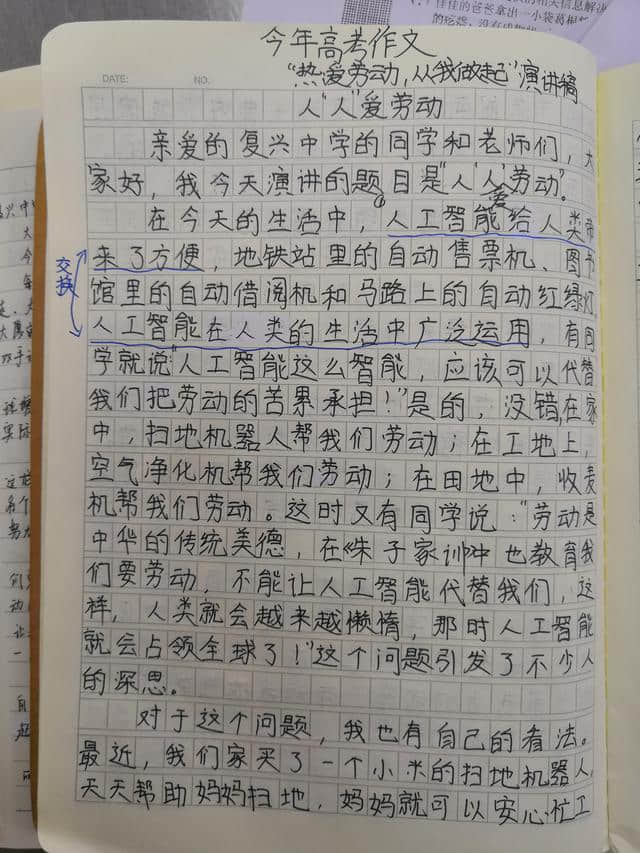 的相关信息解决
佳佳的爸爸拿出一小袋葛根
今年高考作文
DATE:
NO.
"热爱劳动,从我做起"演讲稿
人"人"爱劳动
亲爱的复兴中学的同学和老师们,大
家好,我今天演讲的题目是"人'人'爱劳动"。
在今天的生活中,人工智能给人类带
来了方便,地铁站里的自动售票机、图书
馆里的自动借阅机和马路上的自动红绿灯,
人工智能在人类的生活中广泛运用,有同
学就说"人工智能这么智能,应该可以代替
我们把劳动的苦累承担!"是的,没错,在家
中,扫地机器人帮我们劳动;在工地上,
空气净化机帮我们劳动;在田地中,收麦
机帮我们劳动。这时又有同学说:"劳动是
中华的传统美德,在《朱子家训》中也教育我
们要劳动,不能让人工智能代替我们,这
样,人类就会越来越懒惰,那时人工智能
就会占领全球了!"这个问题引发了不少人
的深思。
对于这个问题,我也有自己的看法。
最近,我们家买了一个小米的扫地机器人,
天天帮助妈妈扫地,妈妈就可以安心忙工
交换